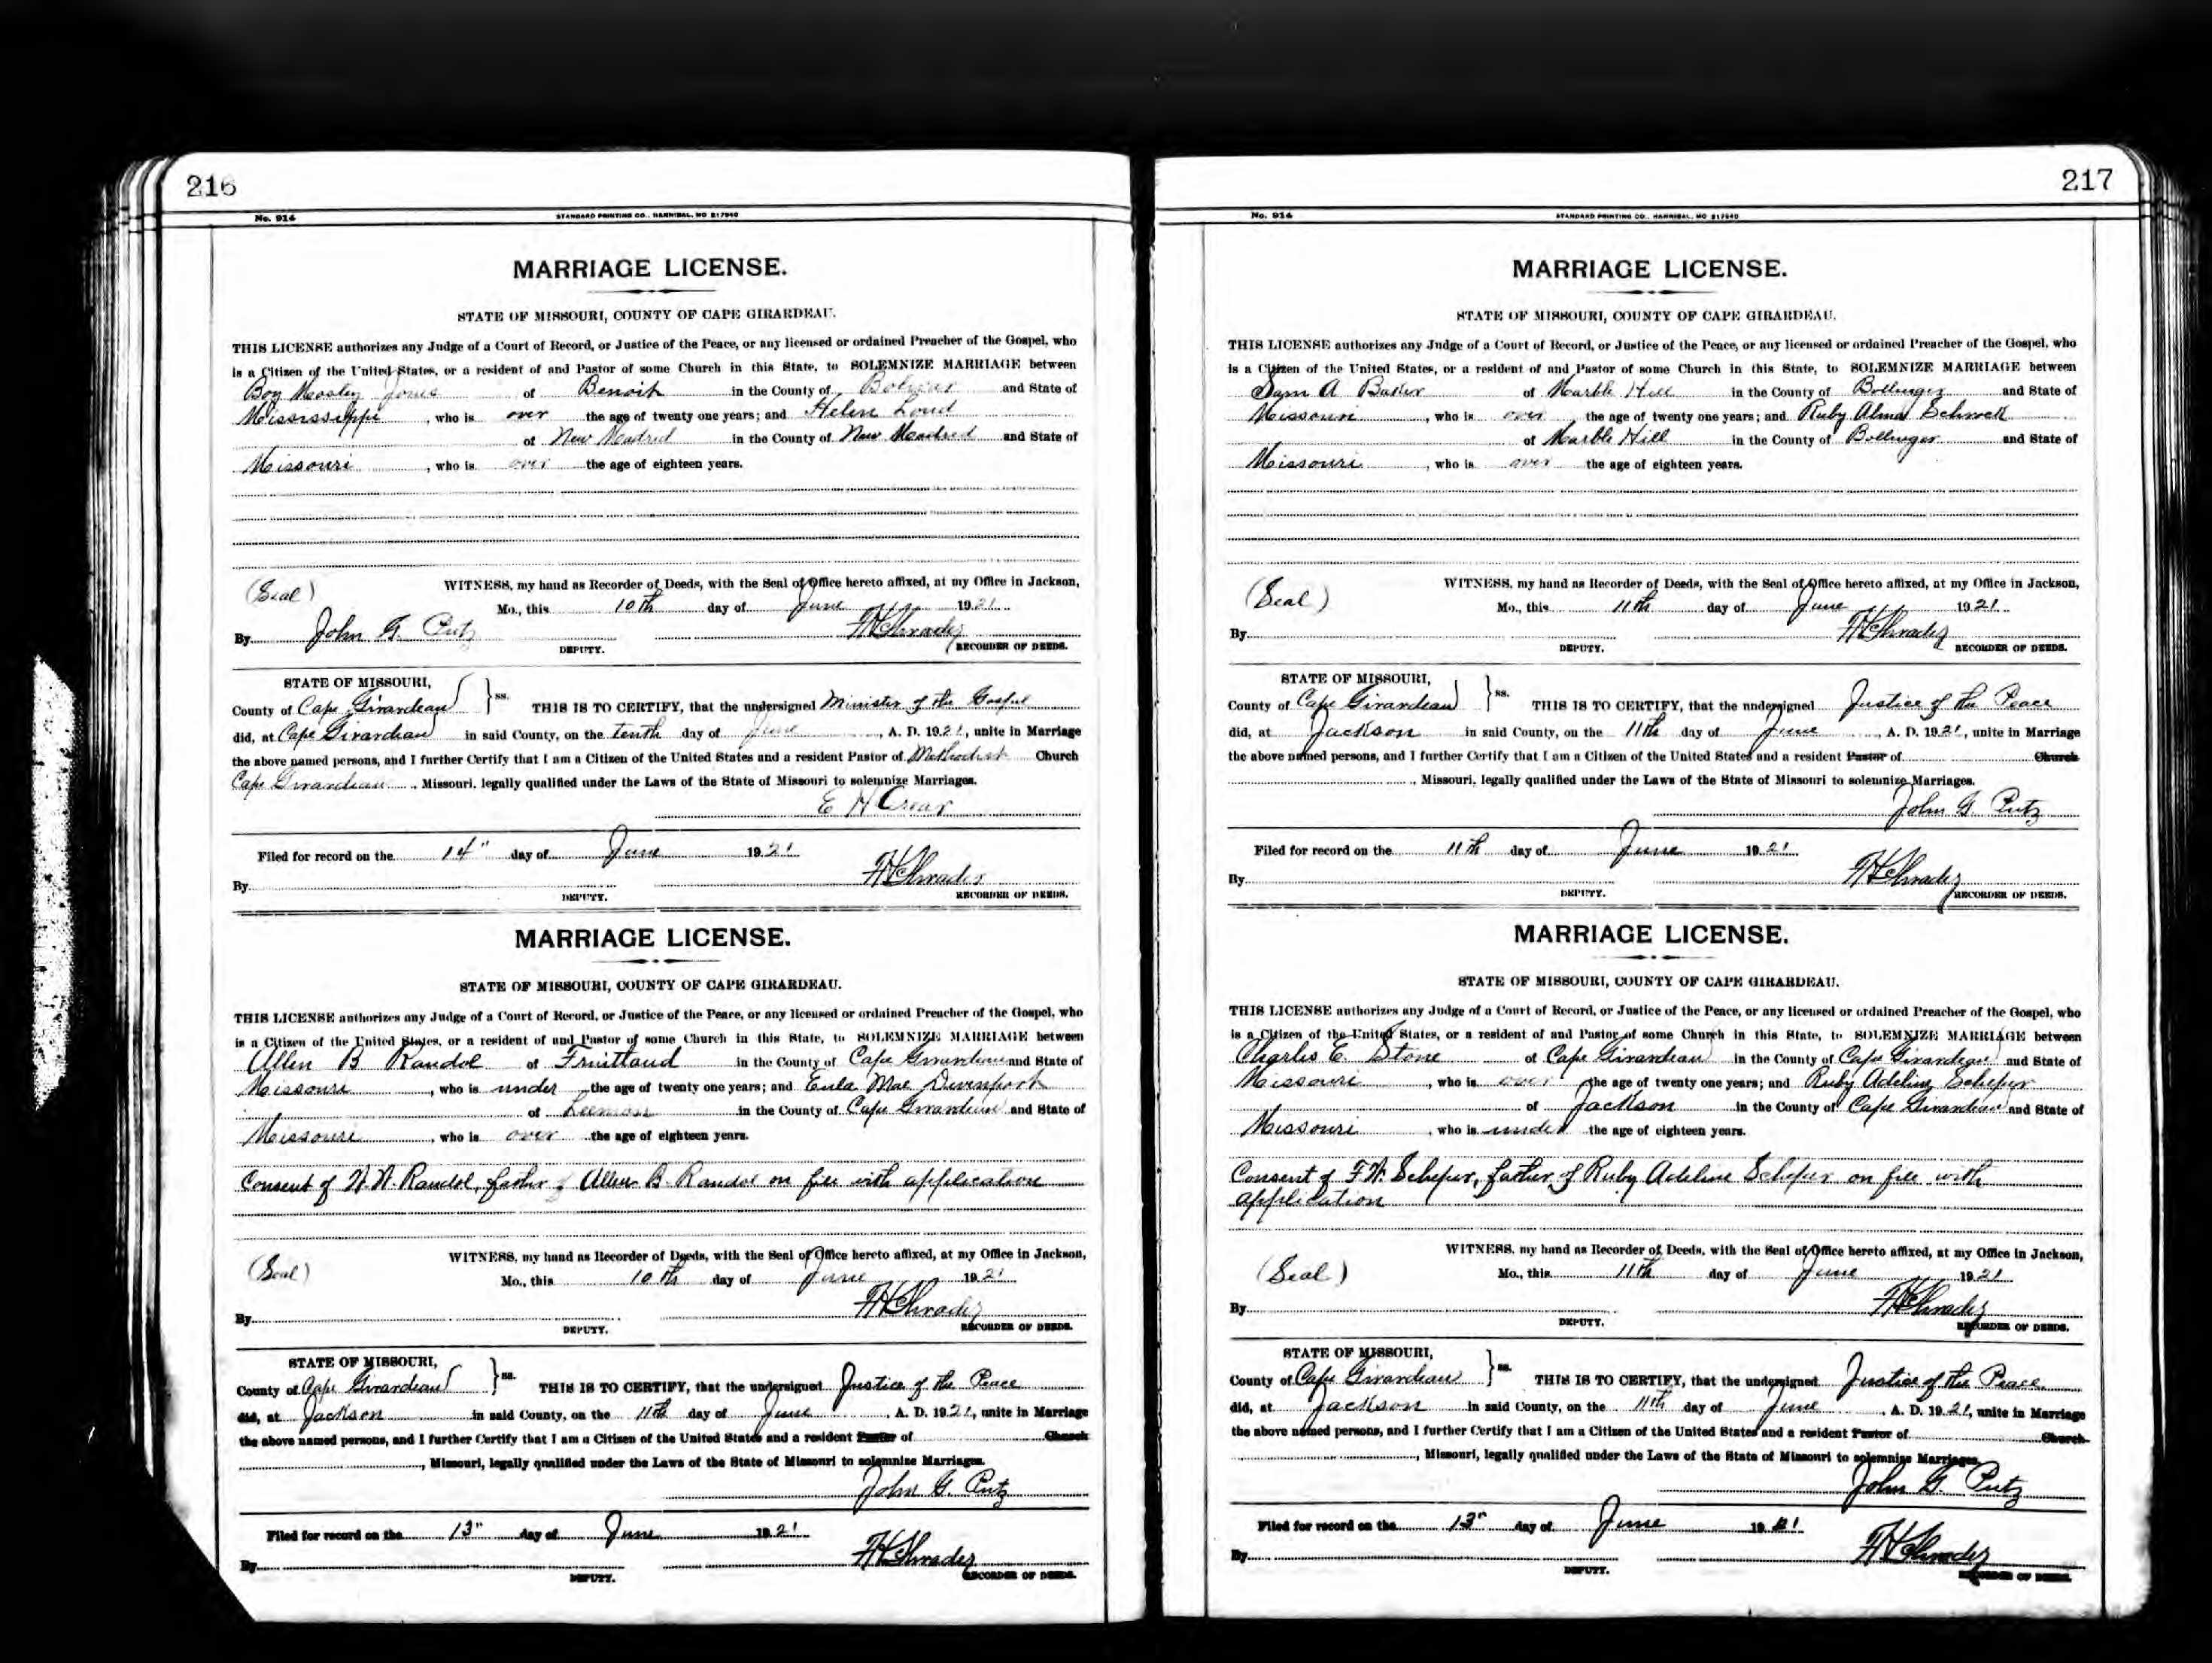 216
No. 914 STANDARD PRINTING CO., HANNIBAL, MO 217940
MARRIAGE LICENSE.
STATE OF MISSOURI, COUNTY OF CAPE GIRARDEAU.
THIS LICENSE authorizes any Judge of a Court of Record, or Justice of the Peace, or any licensed or ordained Preacher of the Gospel, who
is a Citizen of the United States, or a resident of and Pastor of some Church in this State, to SOLEMNIZE MARRIAGE between
Boy Mosley Jones of Benoit in the County of Bolivar and State of
Mississippi, who is over the age of twenty one years; and Helen
of New Madrid in the County of New Madrid and State of
Missouri, who is over the age of eighteen years.
(Seal) WITNESS, my hand as Recorder of Deeds, with the Seal of Office hereto affixed, at my Office in Jackson,
Mo., this 10th day of June 1921.
By John G. Putz DEPUTY. RECORDER OF DEEDS.
STATE OF MISSOURI,
County of Cape Girardeau } ss. THIS IS TO CERTIFY, that the undersigned Minister of the Gospel
did, at Cape Girardeau in said County, on the tenth day of June, A. D. 1921, unite in Marriage
the above named persons, and I further Certify that I am a Citizen of the United States and a resident Pastor of Methodist Church
Cape Girardeau, Missouri, legally qualified under the Laws of the State of Missouri to solemnize Marriages.
E H Orear
Filed for record on the 14" day of June 1921
By DEPUTY. RECORDER OF DEEDS.
MARRIAGE LICENSE.
STATE OF MISSOURI, COUNTY OF CAPE GIRARDEAU.
THIS LICENSE authorizes any Judge of a Court of Record, or Justice of the Peace, or any licensed or ordained Preacher of the Gospel, who
is a Citizen of the United States, or a resident of and Pastor of some Church in this State, to SOLEMNIZE MARRIAGE between
Allen B Randol of Fruitland in the County of Cape Girardeau and State of
Missouri, who is under the age of twenty one years; and Eula Mae Davenport
of Leemon in the County of Cape Girardeau and State of
Missouri, who is over the age of eighteen years.
Consent of W. W. Randol, father of Allen B. Randol on file with application
(Seal) WITNESS, my hand as Recorder of Deeds, with the Seal of Office hereto affixed, at my Office in Jackson,
Mo., this 10th day of June 1921
By DEPUTY. RECORDER OF DEEDS.
STATE OF MISSOURI,
County of Cape Girardeau } ss. THIS IS TO CERTIFY, that the undersigned Justice of the Peace
did, at Jackson in said County, on the 11th day of June, A. D. 1921, unite in Marriage
the above named persons, and I further Certify that I am a Citizen of the United States and a resident Pastor of Church
, Missouri, legally qualified under the Laws of the State of Missouri to solemnize Marriages.
John G. Putz
Filed for record on the 13" day of June 1921
By DEPUTY. RECORDER OF DEEDS.
217
No. 914 STANDARD PRINTING CO., HANNIBAL, MO 217940
MARRIAGE LICENSE.
STATE OF MISSOURI, COUNTY OF CAPE GIRARDEAU.
THIS LICENSE authorizes any Judge of a Court of Record, or Justice of the Peace, or any licensed or ordained Preacher of the Gospel, who
is a Citizen of the United States, or a resident of and Pastor of some Church in this State, to SOLEMNIZE MARRIAGE between
Sam A Baker of Marble Hill in the County of Bollinger and State of
Missouri, who is over the age of twenty one years; and Ruby Alma Schrock
of Marble Hill in the County of Bollinger and State of
Missouri, who is over the age of eighteen years.
(Seal) WITNESS, my hand as Recorder of Deeds, with the Seal of Office hereto affixed, at my Office in Jackson,
Mo., this 11th day of June 1921.
By DEPUTY. RECORDER OF DEEDS.
STATE OF MISSOURI,
County of Cape Girardeau } ss. THIS IS TO CERTIFY, that the undersigned Justice of the Peace
did, at Jackson in said County, on the 11th day of June, A. D. 1921, unite in Marriage
the above named persons, and I further Certify that I am a Citizen of the United States and a resident Pastor of Church
, Missouri, legally qualified under the Laws of the State of Missouri to solemnize Marriages.
John G Putz
Filed for record on the 11th day of June 1921.
By DEPUTY. RECORDER OF DEEDS.
MARRIAGE LICENSE.
STATE OF MISSOURI, COUNTY OF CAPE GIRARDEAU.
THIS LICENSE authorizes any Judge of a Court of Record, or Justice of the Peace, or any licensed or ordained Preacher of the Gospel, who
is a Citizen of the United States, or a resident of and Pastor of some Church in this State, to SOLEMNIZE MARRIAGE between
Charles C. Stone of Cape Girardeau in the County of Cape Girardeau and State of
Missouri, who is over the age of twenty one years; and Ruby Adeline Scheper
of Jackson in the County of Cape Girardeau and State of
Missouri, who is under the age of eighteen years.
Consent of F. W. Scheper, father of Ruby Adeline Scheper on file with
application
(Seal) WITNESS, my hand as Recorder of Deeds, with the Seal of Office hereto affixed, at my Office in Jackson,
Mo., this 11th day of June 1921
By DEPUTY. RECORDER OF DEEDS.
STATE OF MISSOURI,
County of Cape Girardeau } ss. THIS IS TO CERTIFY, that the undersigned Justice of the Peace
did, at Jackson in said County, on the 11th day of June, A. D. 1921, unite in Marriage
the above named persons, and I further Certify that I am a Citizen of the United States and a resident Pastor of Church
, Missouri, legally qualified under the Laws of the State of Missouri to solemnize Marriages.
John G. Putz
Filed for record on the 13" day of June 1921
By DEPUTY. RECORDER OF DEEDS.